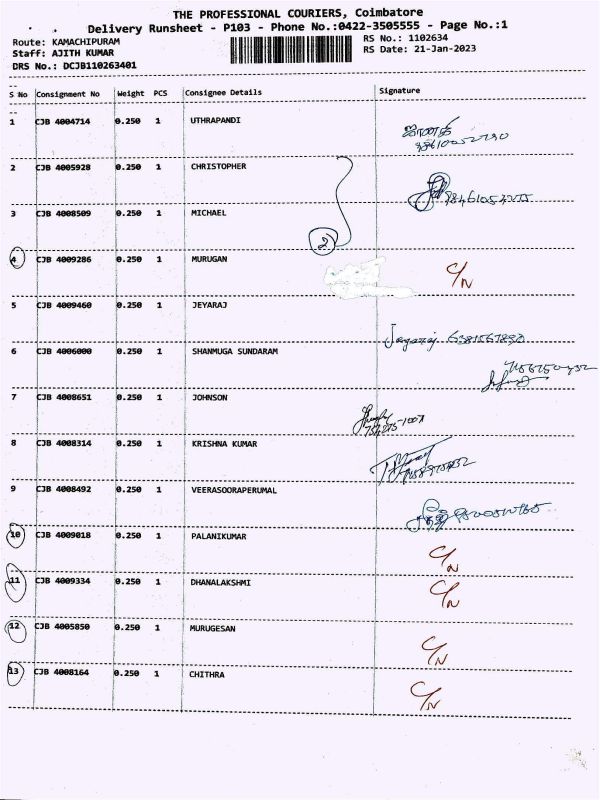 THE PROFESSIONAL COURIERS, Coimbatore
Delivery Runsheet - P103 - Phone No.:0422-3505555 - Page No.:1
Route: KAMACHIPURAM
RS No.: 1102634
Staff: AJITH KUMAR
RS Date: 21-Jan-2023
DRS No.: DCJB110263401
S No Consignment No Weight PCS Consignee Details Signature
1 CJB 4004714 0.250 1 UTHRAPANDI
2 CJB 4005928 0.250 1 CHRISTOPHER
3 CJB 4008509 0.250 1 MICHAEL
2
4 CJB 4009286 0.250 1 MURUGAN C/N
5 CJB 4009460 0.250 1 JEYARAJ
6 CJB 4006000 0.250 1 SHANMUGA SUNDARAM
7 CJB 4008651 0.250 1 JOHNSON
8 CJB 4008314 0.250 1 KRISHNA KUMAR
9 CJB 4008492 0.250 1 VEERASOORAPERUMAL
10 CJB 4009018 0.250 1 PALANIKUMAR C/N
11 CJB 4009334 0.250 1 DHANALAKSHMI C/N
12 CJB 4005850 0.250 1 MURUGESAN C/N
13 CJB 4008164 0.250 1 CHITHRA C/N